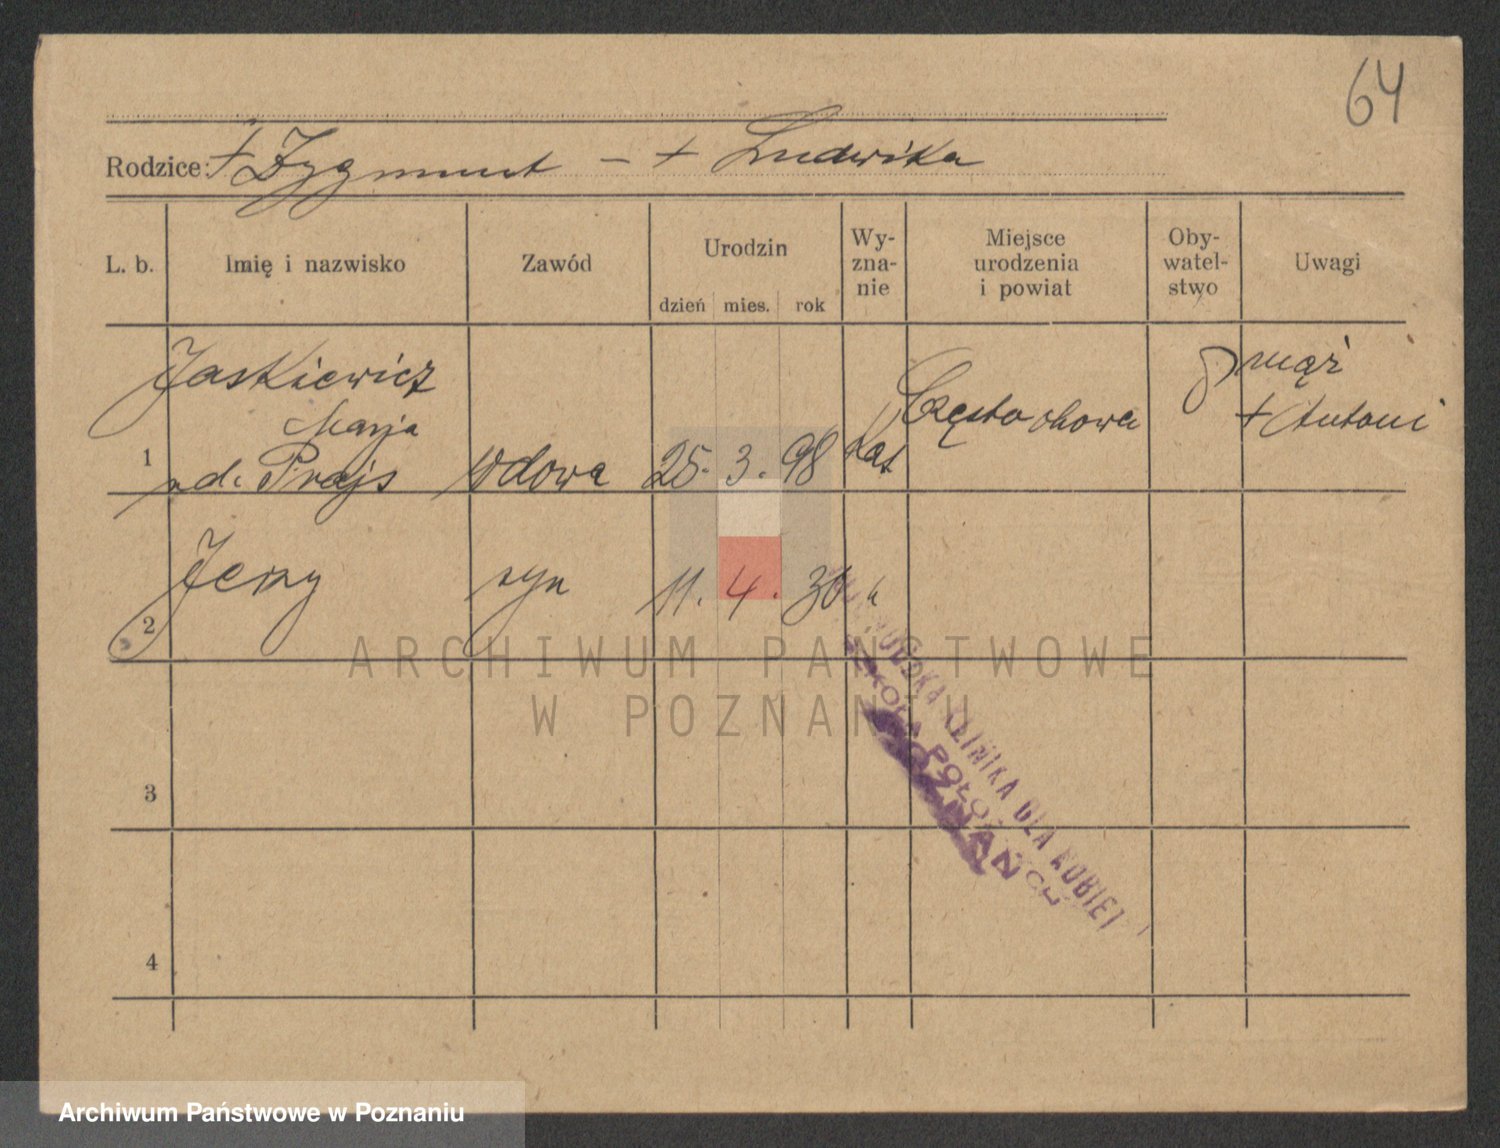 64
Rodzice: + Zygmunt – + Ludwika
L. b. Imię i nazwisko Zawód Urodzin dzień mies. rok Wy-
zna-
nie Miejsce
urodzenia
i powiat Oby-
watel-
stwo Uwagi
Jaskiewicz mąż
Marja Częstochowa + Antoni
1 zd. Prajs Wdowa 25. 3. 98 Kat
2 Jerzy syn 11. 4. 30 "
KLINIKA DLA KOBIET
SZKOŁA POŁOŻNYCH
POZNAŃ
3
4
ARCHIWUM PAŃSTWOWE
W POZNANIU
Archiwum Państwowe w Poznaniu